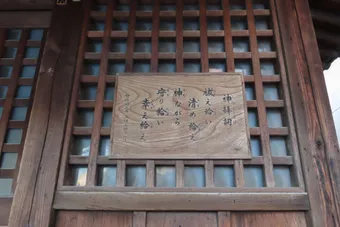 神拝詞
祓え給い
清め給え
神ながら
守り給い
幸え給え